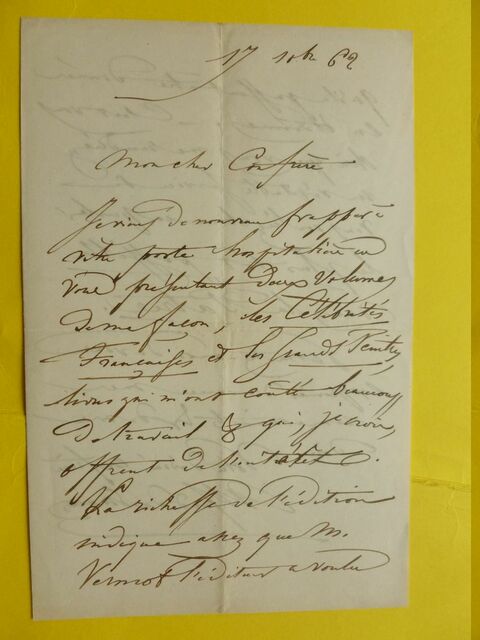 17 10bre 62
Mon cher Confrère
Je viens de nouveau frapper à
votre porte hospitalière en
vous présentant deux volumes
de ma façon, les Célébrités
Françaises et les Grands Peintres,
livres qui m'ont coûté beaucoup
de travail & qui, je crois,
offrent de l'intérêt.
La richesse de l'édition
indique assez que M.
Vermot l'éditeur a voulu